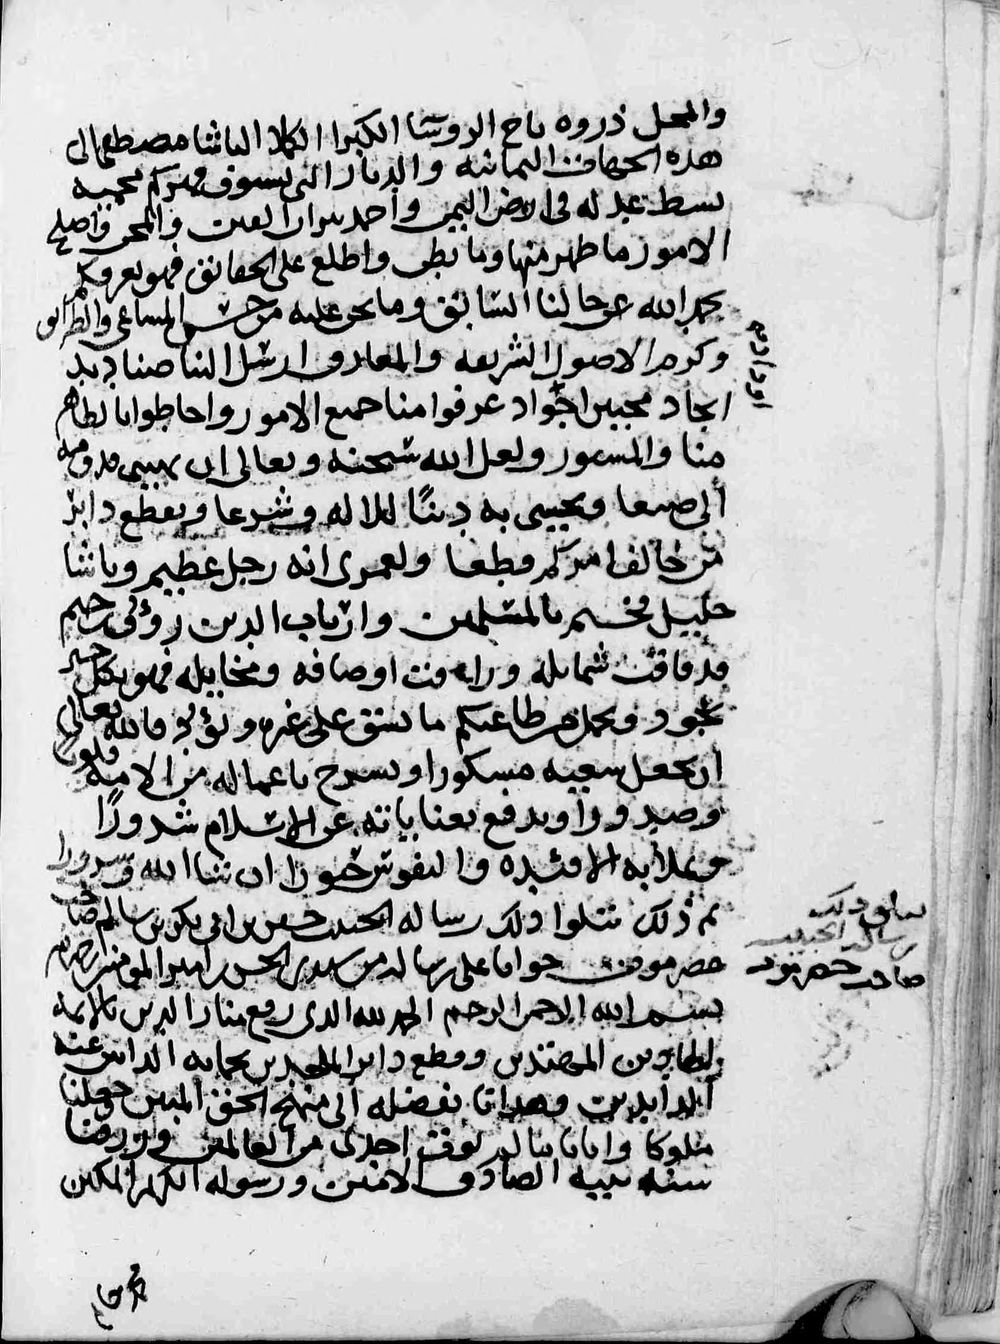 والمحل ذروه تاج الروسا الكبرا الكملا الباشا مصطفى الى
هذه الجهات اليمانيه والديار التي بسوق
بسط عدله في ارض اليمن واخمد نيران الفتن والمحن واصلح
الامور ما ظهر منها وما بطن واطلع على الحقائق فهو يعرفكم
بحمد الله عن حالنا السابق وما نحن عليه من حسن المساعي والطرائق
وكرم الاصول الشريفه والمعارف ارسل الينا صناديد
انجاد محبين اجواد عرفوا منا جميع الامور واحاطوا بالظاهر
منا والمستور ولعل الله سبحنه وتعالى ان يهيى قدومه
الى صنعا ويحيى به دينًا للاله وشرعا ويقطع دابر
من خالف امركم قطعا ولعمري انه رجل عظيم وباشا
جليل فخيم بالمسلمين وارباب الدين رؤف رحيم
قد فاقت شمايله وراقت اوصافه ومخايله فهو بكل خير
يجود ويحمل من طاعتكم ما يشق على غيره ويؤود فالله تعالى
ان يجعل سعيه مشكورا ويشرح باعماله من الامه قلوبا
وصدورا ويدفع بعناياته عن الاسلام شرورًا
ويملأ به الافئيده والنفوس حبورا ان شاالله وسرورا
ثم ذلك نتلوا ذلك رساله الحبيب حسين بن ابي بكر بن سالم صاحب
حضرموت جوابا على رساله من سيدي الحسن امير المومنين
بسم الله الرحمن الرحيم الحمد لله الذي رفع منار الدين بالايمه
الهادين المهتدين وقطع دابر الملحدين بحمايه الذابين عنه
أبد أبدين وهدانا بفضله الى منهج الحق المبين وجعلنا
ملوكا واتانا ما لم يوت احدًا من العالمين ورزقنا
سنه نبيه الصادق الامين ورسوله الكريم المكين
سياق ذلك
رساله الحبيب
صاحب حضرموت